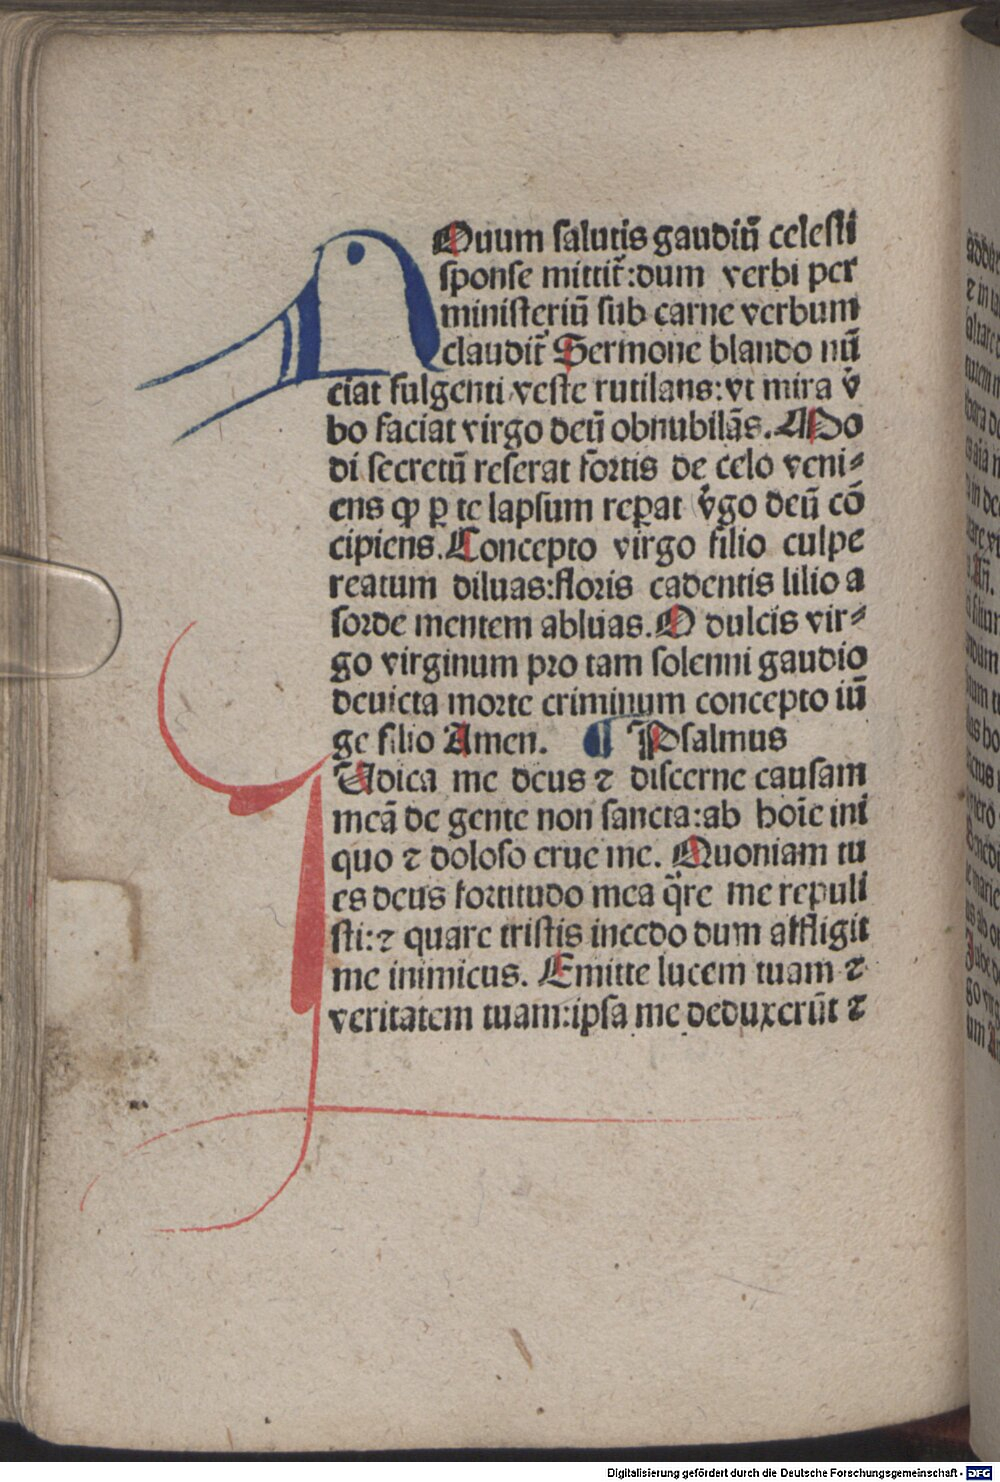 NOuum salutis gaudiū celesti
sponse mittit̄:dum verbi per
ministeriū sub carne verbum
claudit̄ Sermone blando nū
ciat fulgenti veste rutilans:vt mira v̄
bo faciat virgo deū obnubilās. Mo
di secretū reserat fortis de celo veni⸗
ens qͥ ꝑ te lapsum reꝑat v̄go deū cō
cipiens. Concepto virgo filio culpe
reatum diluas:floris cadentis lilio a
sorde mentem abluas. O dulcis vir⸗
go virginum pro tam solenni gaudio
deuicta morte criminum concepto iū
ge filio Amen. ¶ Psalmus
IUdica me deus ⁊ discerne causam
meā de gente non sancta:ab hoīe ini
quo ⁊ doloso erue me. Quoniam tu
es deus fortitudo mea q̄re me repuli
sti:⁊ quare tristis incedo dum affligit
me inimicus. Emitte lucem tuam ⁊
veritatem tuam:ipsa me deduxerūt ⁊
Digitalisierung gefördert durch die Deutsche Forschungsgemeinschaft - DFG